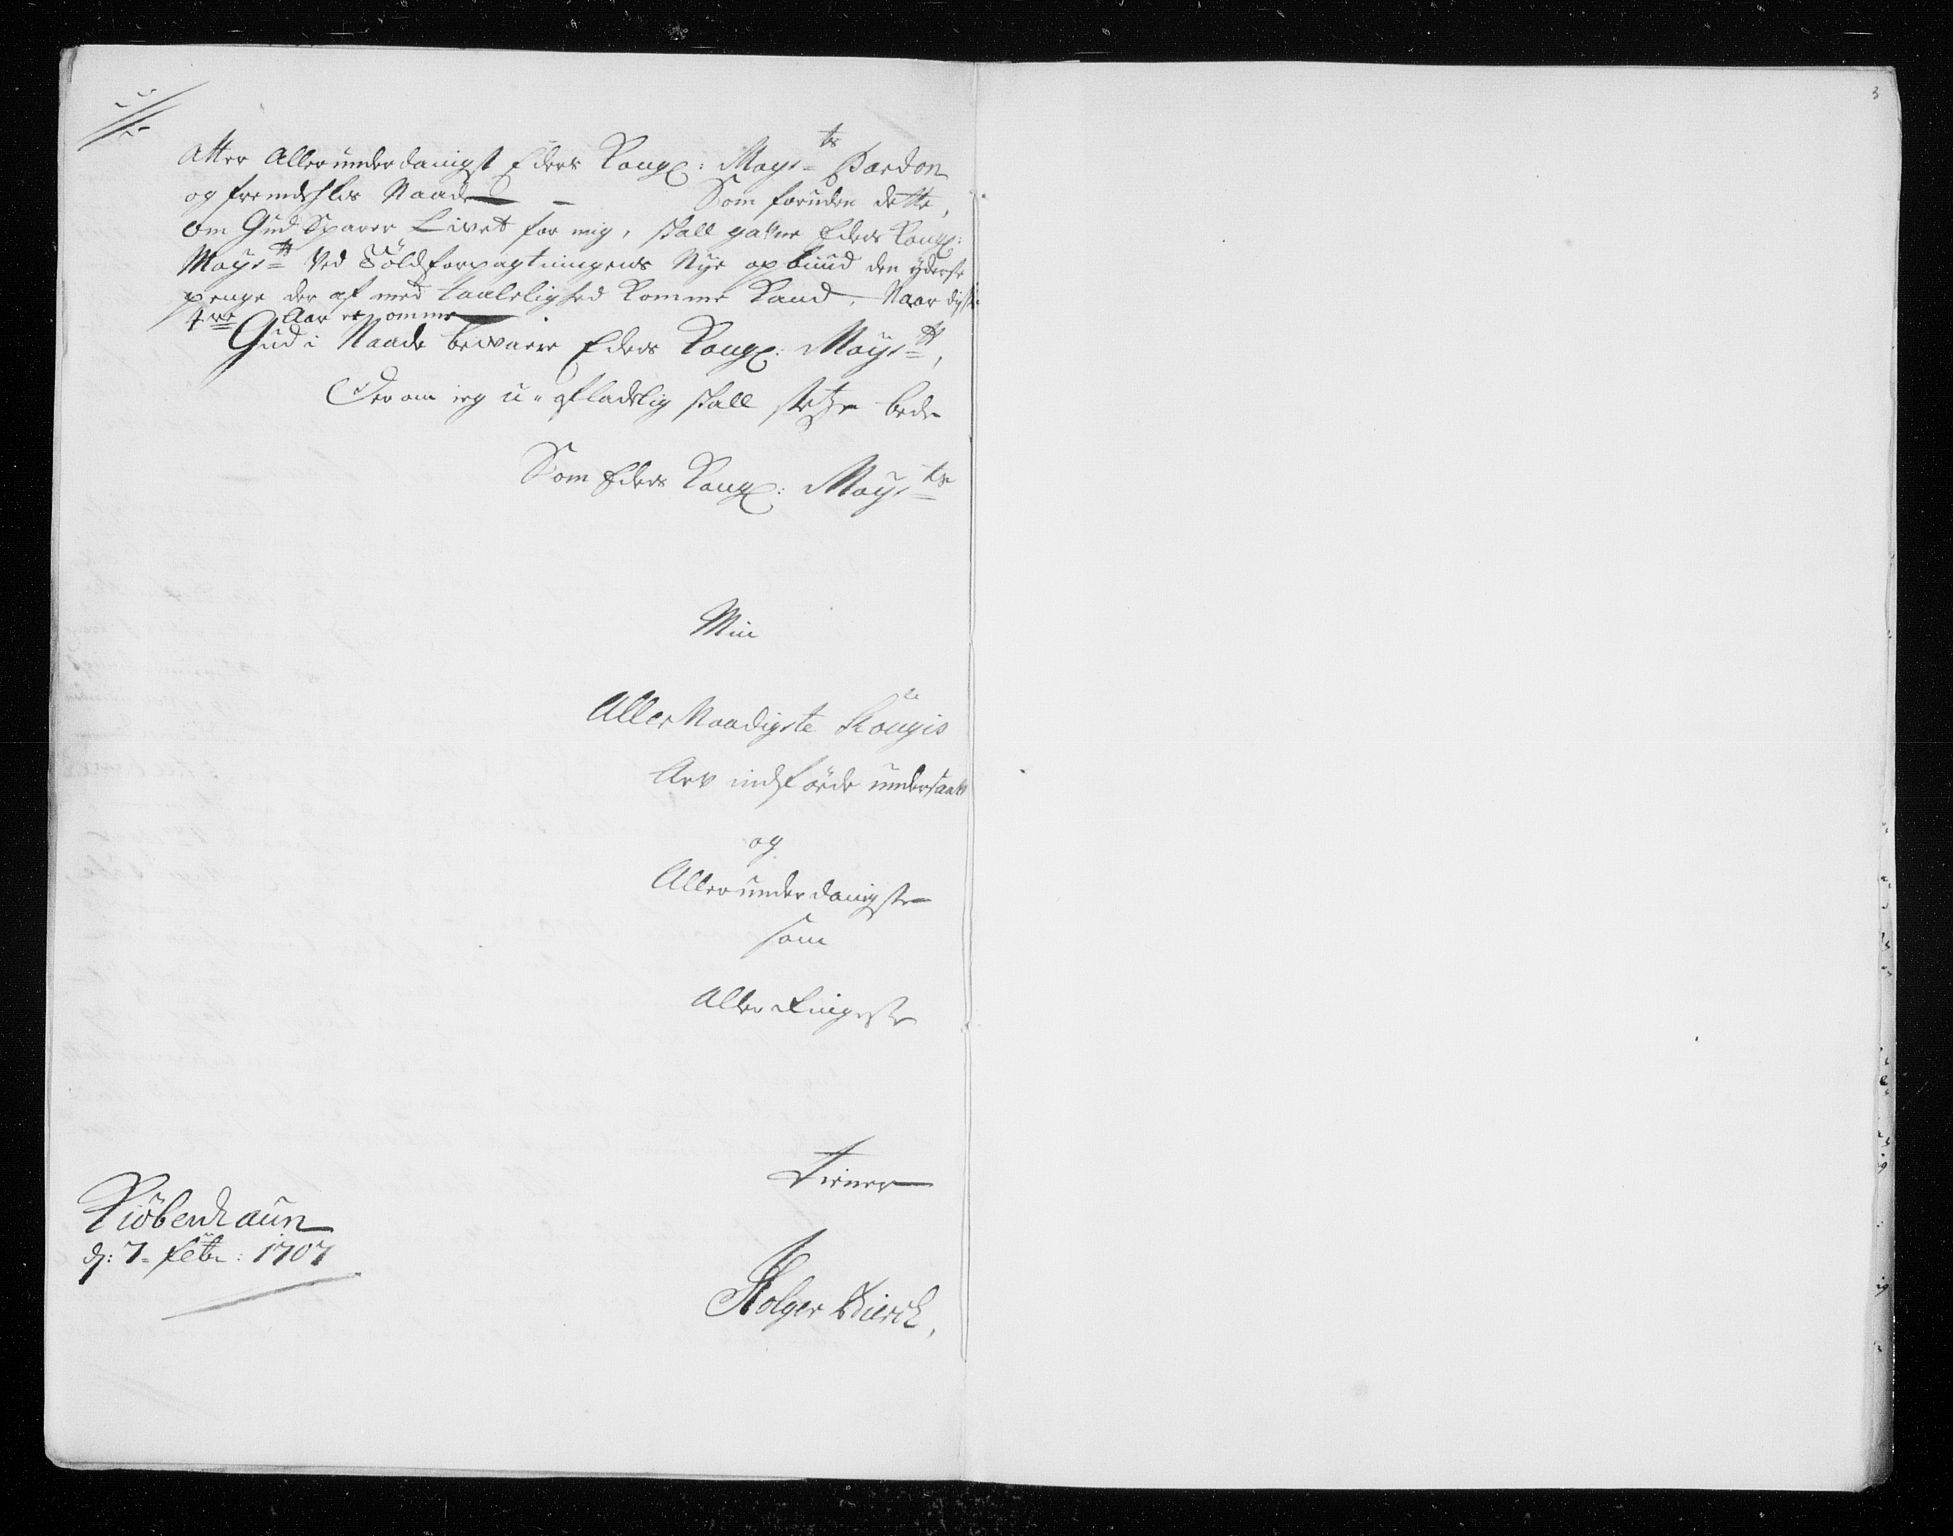 Atter Allerunderdanigst Eders Kongl: Mayts Pardon
og fremdeelis Naade Som foruden dette,
om Gud Sparer Livet for mig, skall gafne Eders Kongl:
Maytt Ved Toldforpagtningens Nye opbuud den yderste
penge der af med taalelighed komme kand, Naar disse
4re Aar er omme
Gud i Naade bewaere Eders Kongl: Maytt,
Der om ieg u-afladelig skall stetze bede
Som Eders Kongl: Mayts
Min
Aller Naadigste Kongis
Arv indførde undersaatt
og
Allerunderdanigste
som
Aller Ringeste
Tiener
Kiöbenhaun
d: 7 Febr: 1707
Holger
3